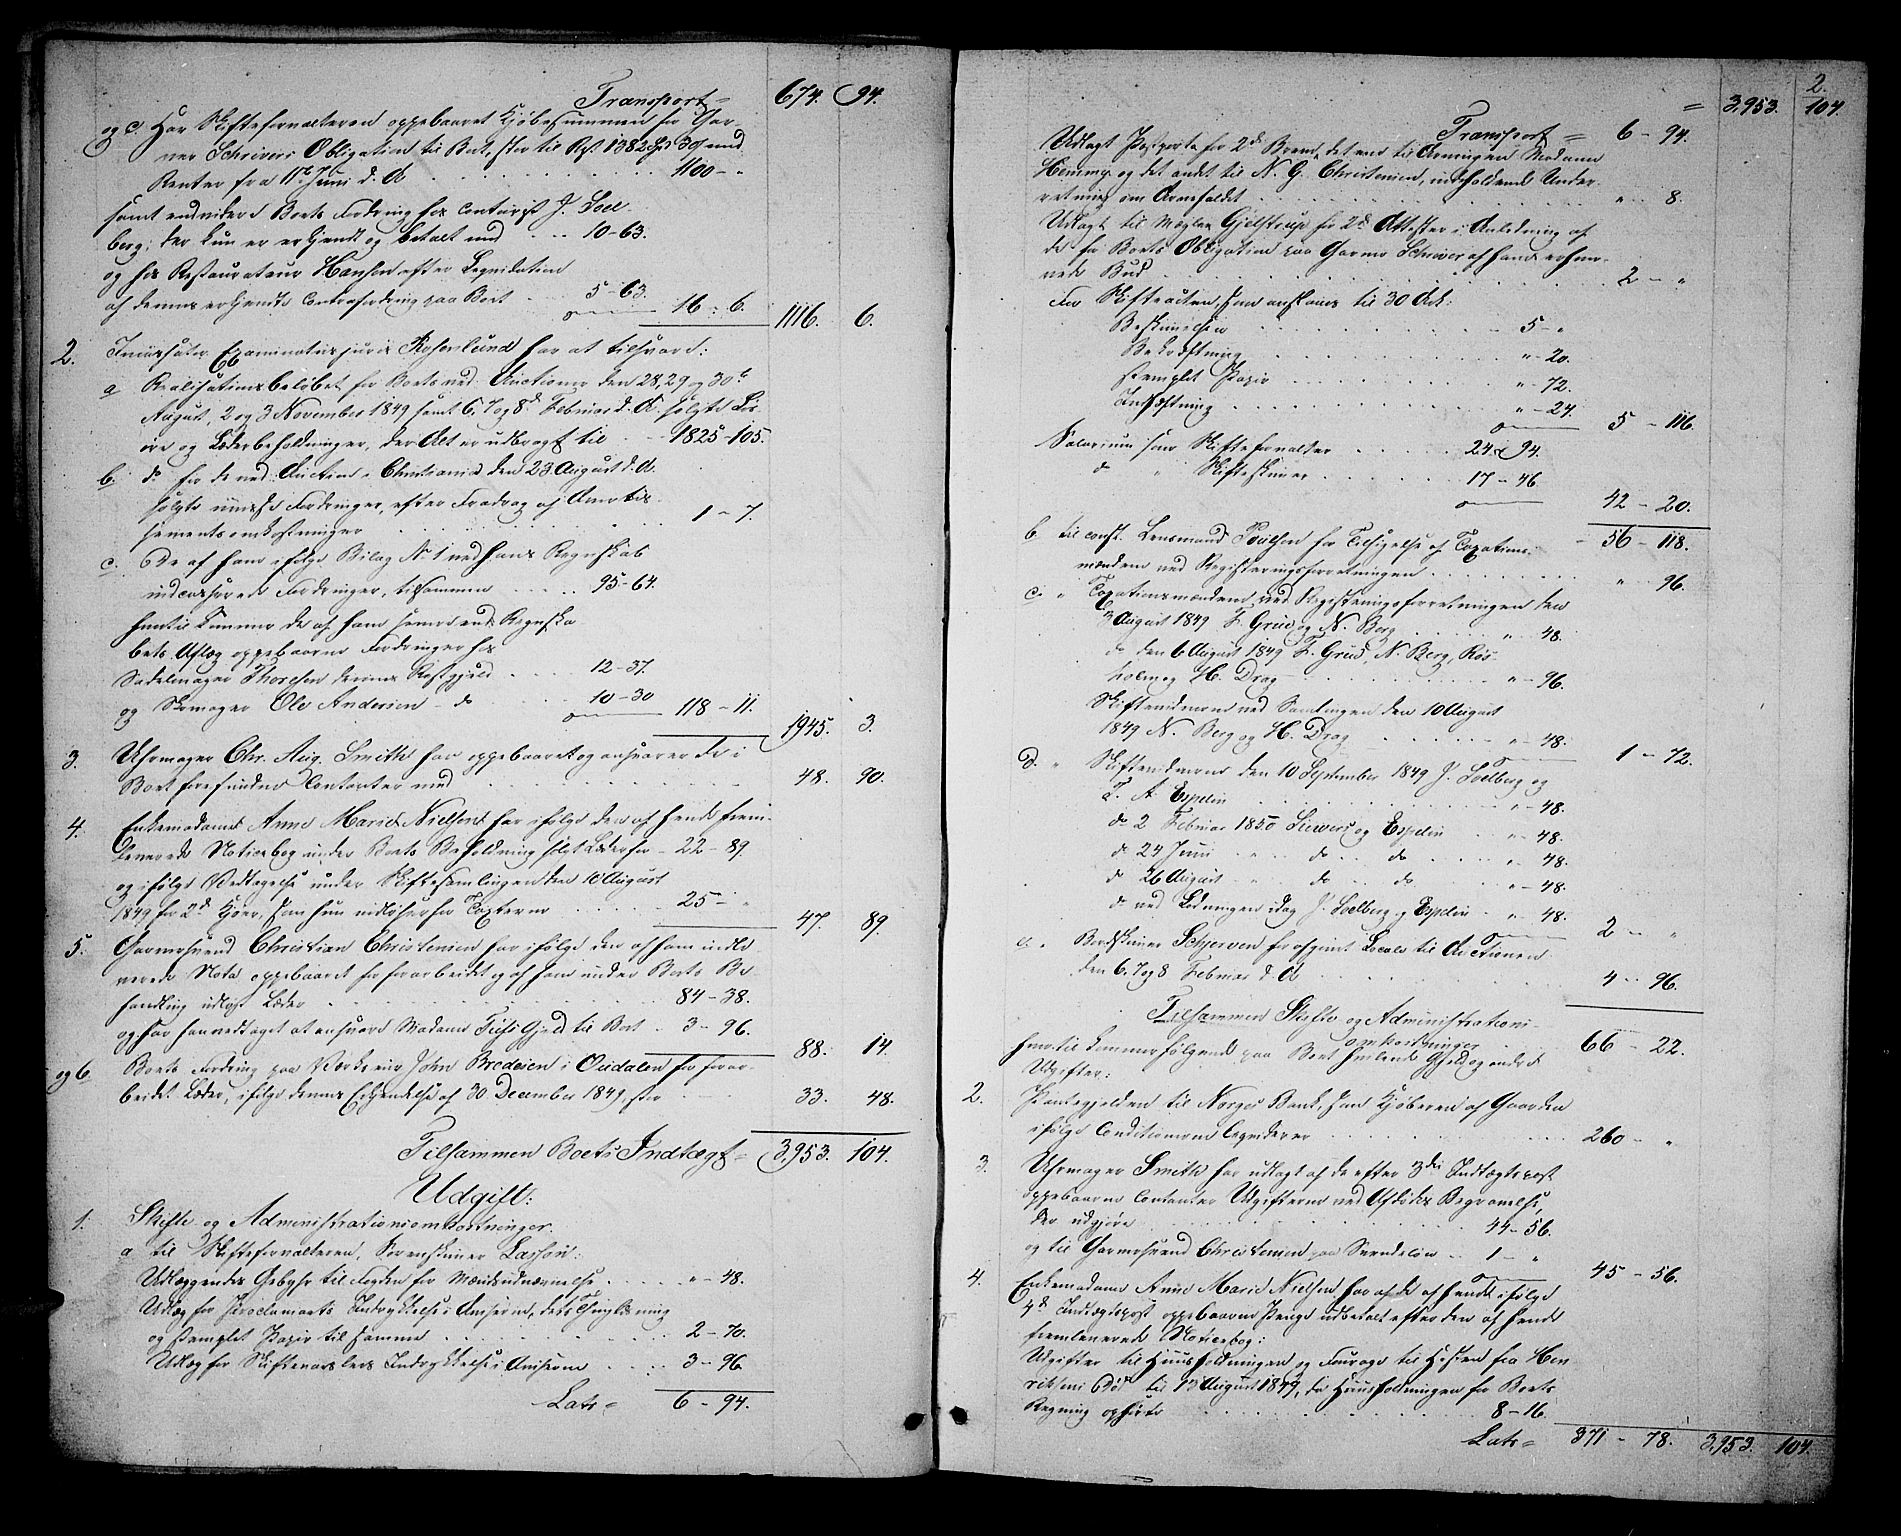 Transport = 674. 94.
og c. Har Skifteforvalteren oppebaaret Kjøbesummen for Gar-
ner Schrivers Obligation til Boet, stor til Rest 1382 Spd 30 med
Renter fra 11te Juni d. A. 1100 - "
samt endvidere Boets Fordring hos Contorist J. Soel-
berg, der kun er erkjendt og betalt med 10-63.
og hos Restaurateur Hansen efter Liqvidation
af dennes erkjendte Contrafordring paa Boet 5-63.
16 - 6. 1116. 6.
2. Incassator, Examinatus juris Rosenlund har at tilsvare:
a Realisationsbeløbet for Boets ved Auctioner den 28, 29 og 30te
August, 2 og 3 November 1849 samt 6, 7 og 8de Februar d. A. solgte Løs-
øre og Læderbeholdninger, der Alt er udbragt til 1825-105.
b. do for de ved Auction i Christiania den 23 August d. A.
solgte uvisse Fordringer, efter Fradrag af Avertis-
sementsomkostninger 1 - 7.
c. De af ham ifølge Bilag No 1 ved hans Regnskab
indcasserede Fordringer, tilsammen 95-64.
hvortil kommer de af ham senere end Regnska-
bets Aflæg oppebaarne Fordringer hos
Sadelmager Thoresen dennes Restgjæld 12-37.
og Skomager Ole Andersen do 10-30
118 - 11. 1945. 3.
3. Uhrmager Chr. Aug. Smith har oppebaaret og ansvarer de i
Boet forefundne Contanter med 48. 90.
4. Enkemadame Anne Marie Nielsen har ifølge den af hende frem-
leverede Noticebog under Boets Beholdning solgt Læder for 22-89.
og ifølge Vedtagelse under Skiftesamlingen den 10 August
1849 for 2de Kjøer, som hun indløser for Taxterne 25 - "
47. 89.
5. Garversvend Christian Christensen har ifølge den af ham indle-
verede Nota oppebaaret for forarbeidet og af ham under Boets Be-
handling udsolgt Læder 84-38.
og har han vedtaget at ansvare Madame Friis Gjæld til Boet 3-96.
88. 14.
og 6 Boets Fordring paa John Bredesen i Ousdalen for forar-
beidet Læder, ifølge dennes Erkjendelse af 30 December 1849, stor 33. 48.
Tilsammen Boets Indtægt = 3953. 104.
Udgift:
1. Skifte og Administrationsomkostninger.
a til Skifteforvalteren, Sorenskriver Lasson:
Udlæggende Gebyhr til Fogden for Mændsudnævnelse " - 48.
Udlæg for Proclamaets Indrykkelse i Aviserne, dets Tinglæsning
og stemplet Papir til samme 2-70.
Udlæg for Skiftevarslers Indrykkelse i Aviserne 3-96
Lats = 6 - 94.
2.
= 3953. 104.
Transport = 6 - 94.
Udlagt Postporto for 2de Breve, det ene til Arvingen Madame
Henning og det andet til N. G. Christensen, indeholdende Under-
retning om Arvefaldet " - 8.
Udlagt til Mægler Gjelstrup for 2de Attester i Anledning af
de for Boets Obligation paa Garver Schriver af hans erhver-
vede Bud 2 - "
For Skifteacten, som anslaaes til 30 Ark:
Beskrivelsen 5 - "
Bekræftning " - 20.
stemplet Papir " - 72.
Indhæftning " - 24.
5 - 116.
Salarium som Skifteforvalter 24 - 94.
do " Skifteskriver 17 - 46
42 - 20.
56 - 118.
b. til const. Lensmand Poulsen for Tilsigelse af Taxations-
mændene ved Registreringsforretningen " 96.
c. " Taxationsmændene ved Registreringsforretningen den
3 August 1849 F. Grue og N. Berg " - 48.
do den 6 August 1849 F. Grue, N. Berg, Røs-
holm og H. Drag " - 96.
Skiftevidnerne ved Samlingen den 10 August
1849 N. Berg og H. Drag " - 48.
1 - 72.
d. " Skiftevidnerne den 10 September 1849 J. Soelberg og
T. A. Espelin " - 48.
do 2 Februar 1850 Siewers og Espelin " - 48.
do 24 Juni " do do " - 48.
do 26 August " do do " - 48.
do ved Slutningen idag J. Soelberg og Espelin " - 48.
2 - "
e. " Bordskriver Schjerven for afgivet Locale til Auctionen
den 6, 7 og 8 Februar d. A. 4 - 96.
Tilsammen Skifte og Administrations-
omkostninger 66 - 22.
hvortil kommer følgende paa Boet hvilende Gjæld og andre
Udgifter:
2. Pantegjelden til Norges Bank, som Kjøberen af Gaarden
ifølge Conditionerne liqviderer 260 - "
3. Uhrmager Smith har udlagt af de efter 3die Indtægtspost
oppebaarne Contanter Udgifterne ved Afdødes Begravelse,
der udgjøre 44-56.
og til Garversvend Christensen paa Svendeløn 1 - "
45 - 56.
4. Enkemadame Anne Marie Nielsen har af de af hende ifølge
4de Indtægtspost oppebaarne Penge udbetalt efter den af hende
fremleverede Noticebog:
Udgifter til Huusholdningen og Fourage til Hesten fra Hen-
riksens Død til 13 August 1849, da Huusholdningen for Boets
Regning ophørte 8-16.
Lats = 371 - 78. 3953. 104.